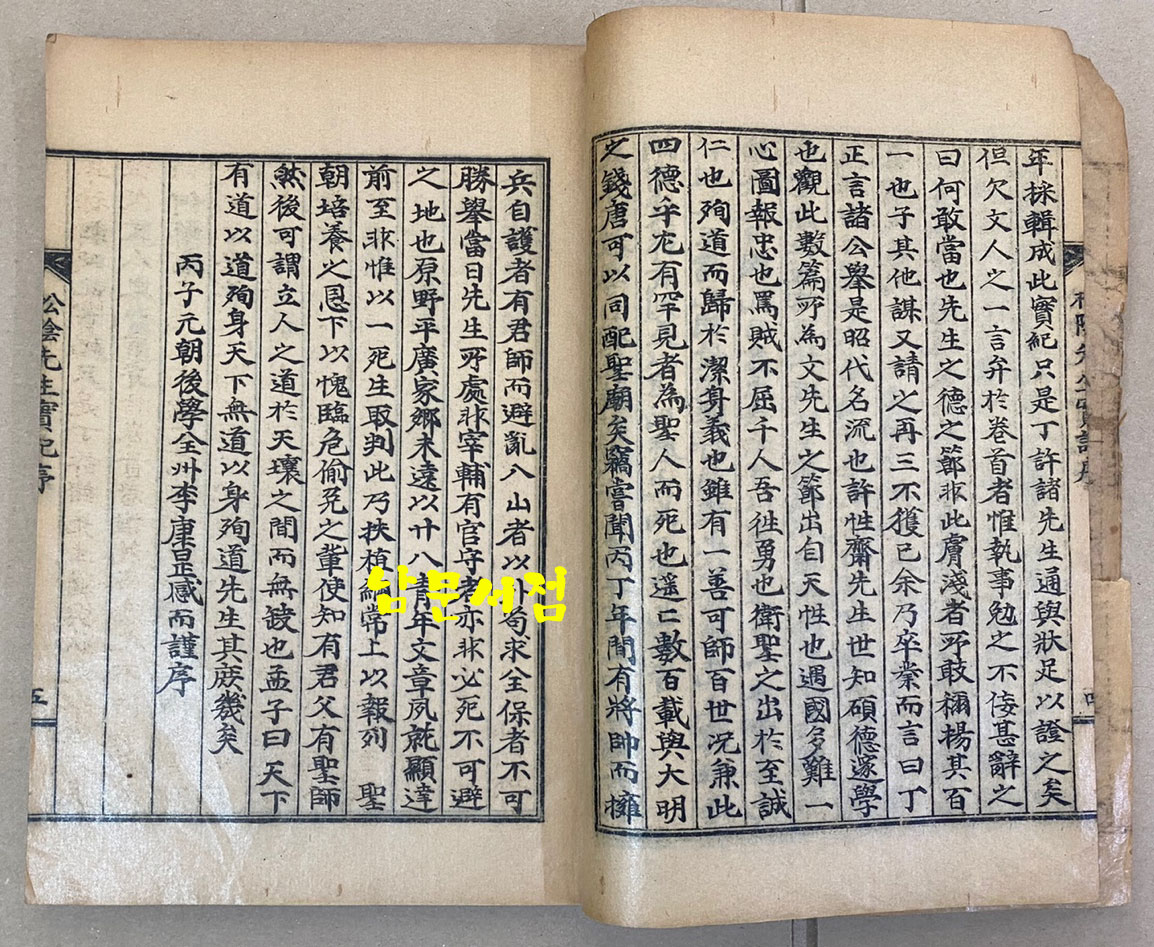 年採輯成此實紀只是丁許諸先生通與狀足以證之矣
但欠文人之一言弁於卷首者惟執事勉之不佞甚辭之
曰何敢當也先生之德之節非此膚淺者所敢禰揚其百
一也子其他謀又請之再三不獲已余乃卒業而言曰丁
正言諸公舉是昭代名流也許性齋先生世知碩德邃學
也觀此數篇所為文先生之節出自天性也遇國多難一
心圖報忠也罵賊不屈千人吾徃勇也衛聖之出於至誠
仁也殉道而歸於潔身義也雖有一善可師百世况兼此
四德乎尤有罕見者為聖人而死也遥亡數百載與大明
之錢唐可以同配聖廟矣竊嘗聞丙丁年間有將帥而擁
四
兵自護者有君師而避亂入山者以外苟求全保者不可
勝舉當日先生所處非宰輔有官守者亦非必死不可避
之地也原野平廣家鄉未遠以廿八青年文章夙就顯達
前至非惟以一死生取判此乃扶植綱常上以報列 聖
朝培養之恩下以愧臨危偷免之輩使知有君父有聖師
然後可謂立人之道於天壤之間而無缺也孟子曰天下
有道以道殉身天下無道以身殉道先生其庶幾矣
丙子元朝後學全州李康呈感而謹序
松陰先生實紀序
五
남문서점